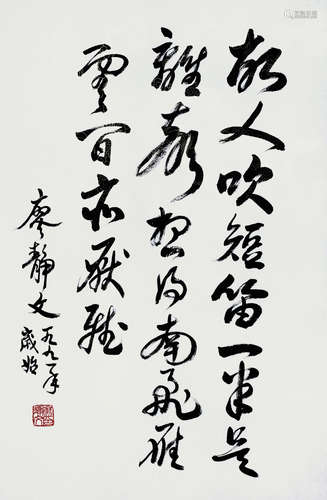 故人吹短笛一半是
離聲想得南飛雁
雲間亦厭聽
廖靜文
一九九一年
歲始